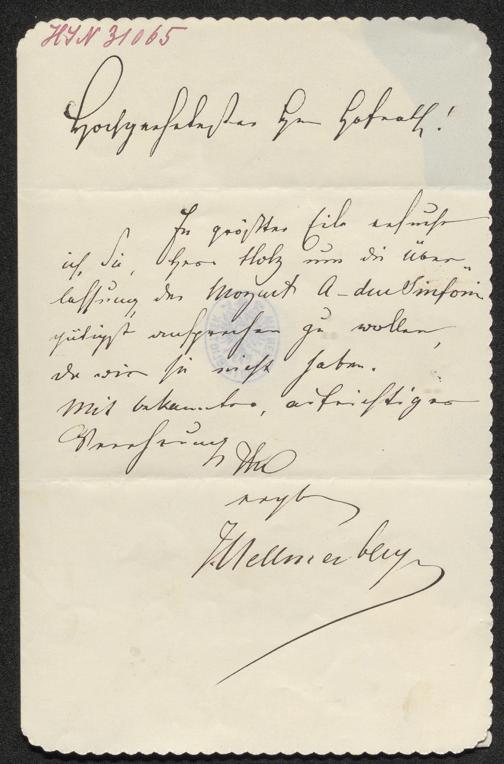 HIN 31065
Hochgeehrtester Herr Hofrath!
In größter Eile ersuche
ich Sie, Herr Holz um die Über
lassung der Mozart A-dur Sinfonie
gütigst ansprechen zu wollen,
da wir sie nicht haben.
Mit bekannter, aufrichtiger
Verehrung Ihr
ergb
J. Hellmesberger